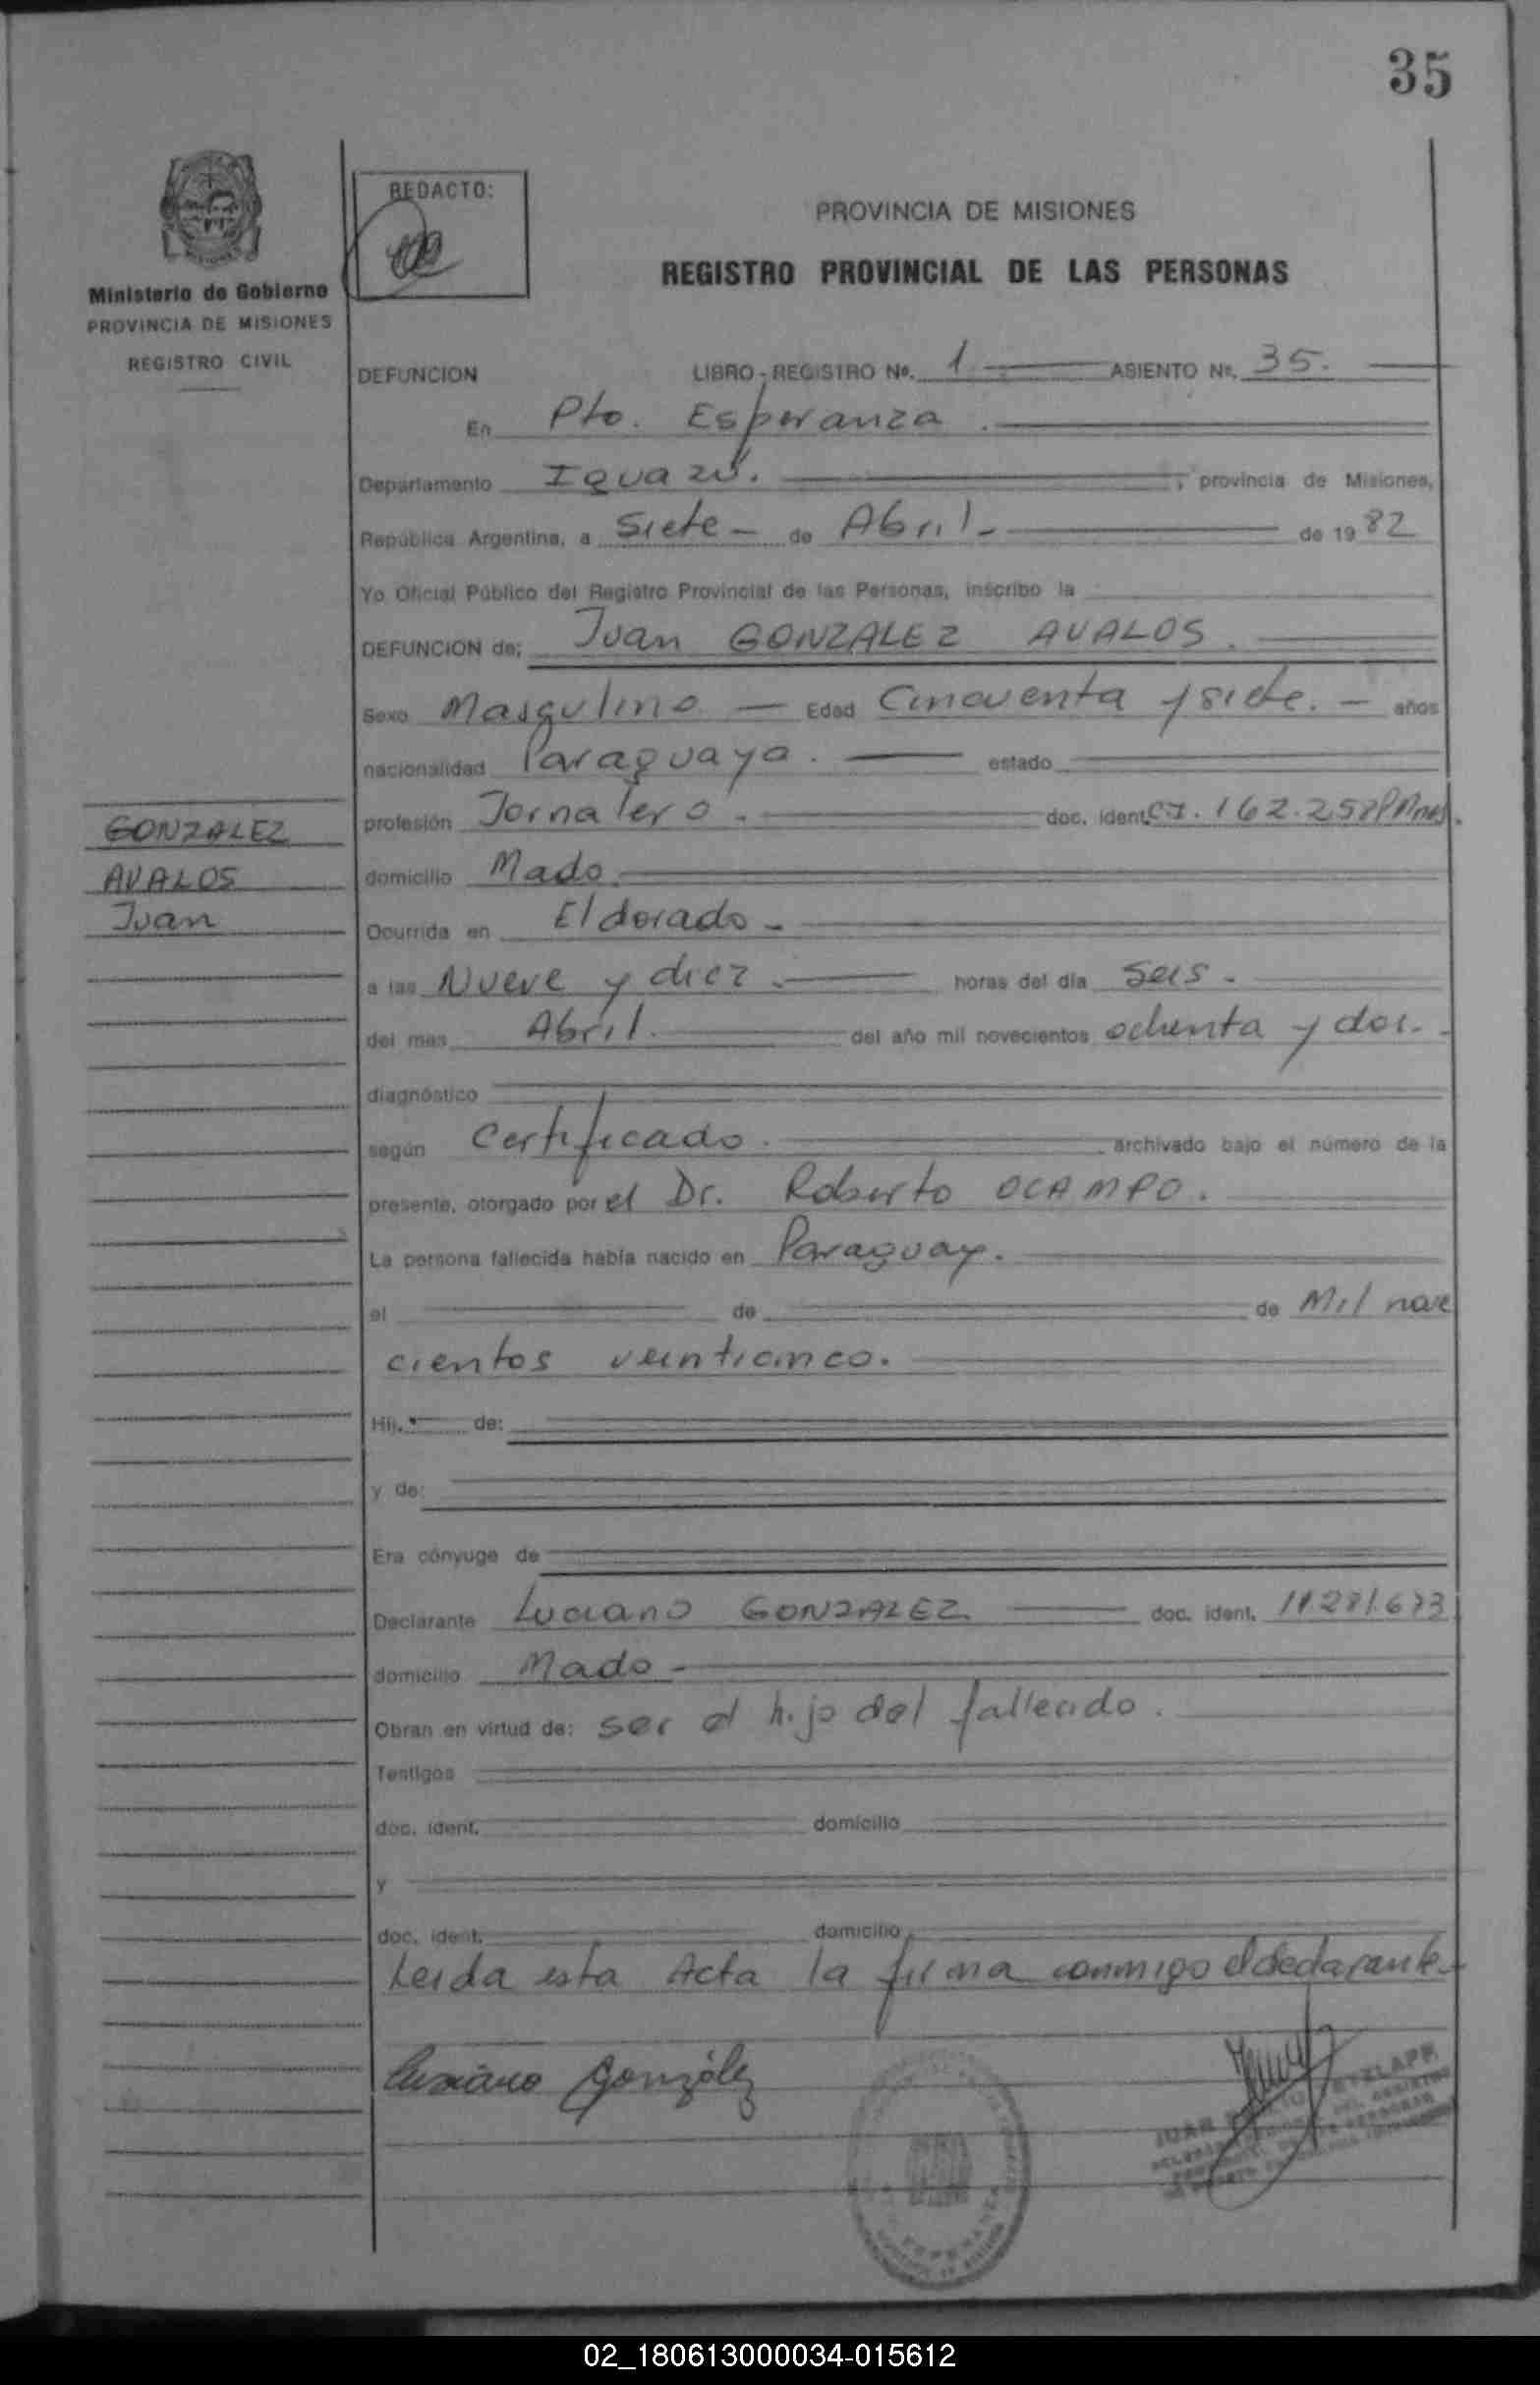 35
REDACTO:
PROVINCIA DE MISIONES
REGISTRO PROVINCIAL DE LAS PERSONAS
Ministerio de Gobierno
PROVINCIA DE MISIONES
REGISTRO CIVIL
DEFUNCION LIBRO-REGISTRO No. 1.- ASIENTO No. 35.
En Pto. Esperanza.
Departamento Iguazú. , provincia de Misiones,
República Argentina, a Siete - de Abril - de 1982
Yo Oficial Público del Registro Provincial de las Personas, inscribo la
DEFUNCION de: Juan GONZALEZ AVALOS.
Sexo Masqulino - Edad Cincuenta y siete. - años
nacionalidad Paraguaya. estado
profesión Jornalero. doc. ident. CI. 162.258
domicilio Mado.
Ocurrida en Eldorado -
a las Nueve y diez. horas del día Seis.
del mes Abril. del año mil novecientos ochenta y dos.-
diagnóstico
según Certificado. archivado bajo el número de la
presente, otorgado por el Dr. Roberto OCAMPO.
La persona fallecida había nacido en Paraguay.
el de de Mil nove
cientos veinticinco.
Hij. de:
y de:
Era cónyuge de
Declarante Luciano GONZALEZ doc. ident. 11281.673
domicilio Mado -
Obran en virtud de: ser el hijo del fallecido.
Testigos
doc. ident. domicilio
y
doc. ident. domicilio
Leida esta Acta la firma conmigo el declarante -
Lusiano González
GONZALEZ
AVALOS
Juan
02_180613000034-015612